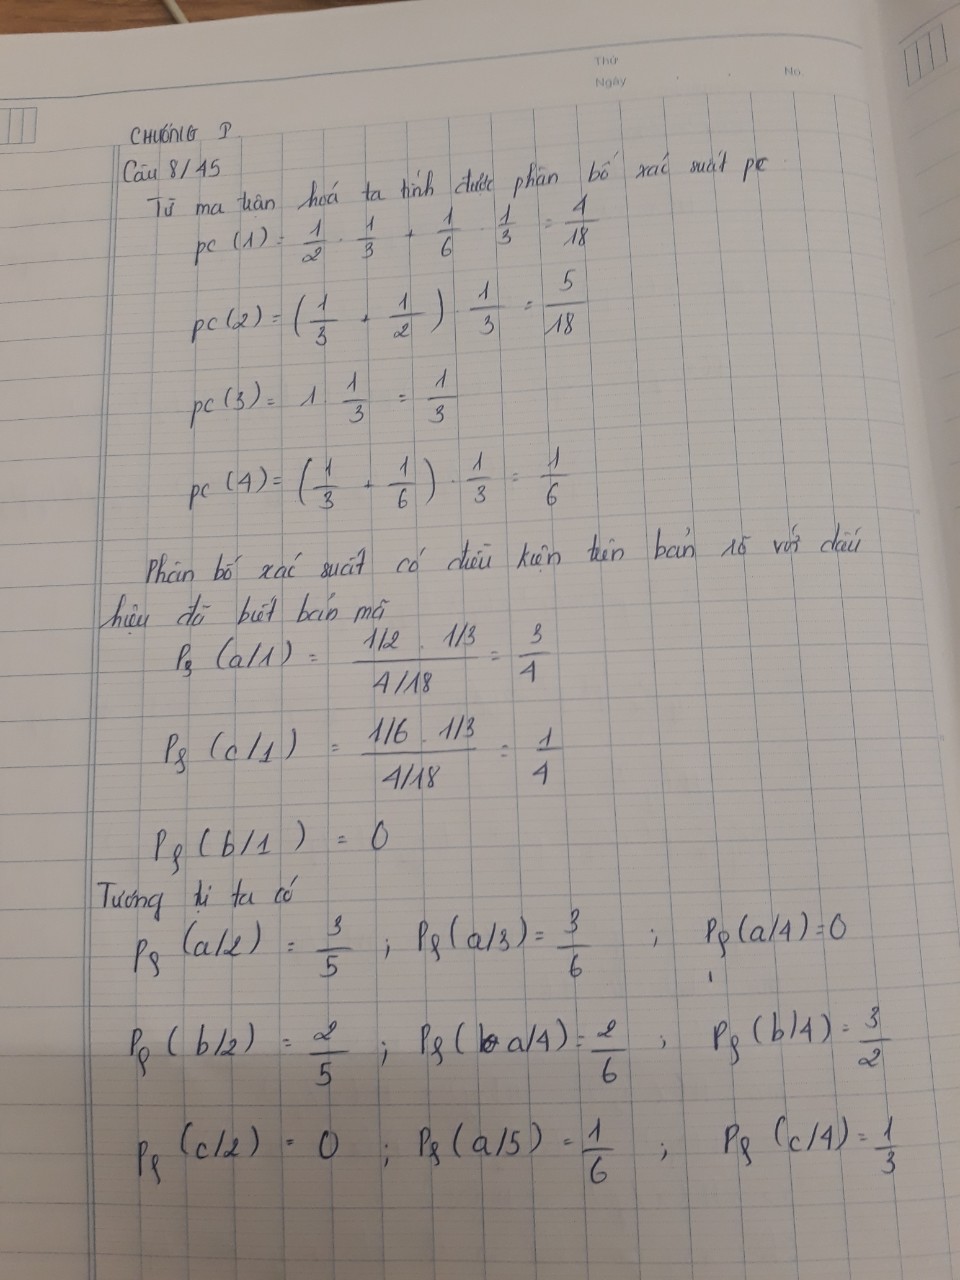 Thứ
Ngày No
CHƯƠNG I
Câu 8/45
Từ ma trận hoá ta tính được phân bố xác suất pc
pc (1) = 1/2 . 1/3 + 1/6 . 1/3 = 4/18
pc (2) = (1/3 + 1/2) 1/3 = 5/18
pc (3) = 1 1/3 = 1/3
pc (4) = (1/3 + 1/6) . 1/3 = 1/6
Phân bố xác suất có điều kiện trên bản rõ với dấu
hiệu đã biết bản mã
Pp (a/1) = (1/2 . 1/3)/(4/18) = 3/4
Pp (c/1) = (1/6 . 1/3)/(4/18) = 1/4
Pp (b/1) = 0
Tương tự ta có
Pp (a/2) = 3/5 ; Pp (a/3) = 3/6 ; Pp (a/4) = 0
Pp (b/2) = 2/5 ; Pp (a/4) = 2/6 ; Pp (b/4) = 3/2
Pp (c/2) = 0 ; Pp (a/5) = 1/6 ; Pp (c/4) = 1/3